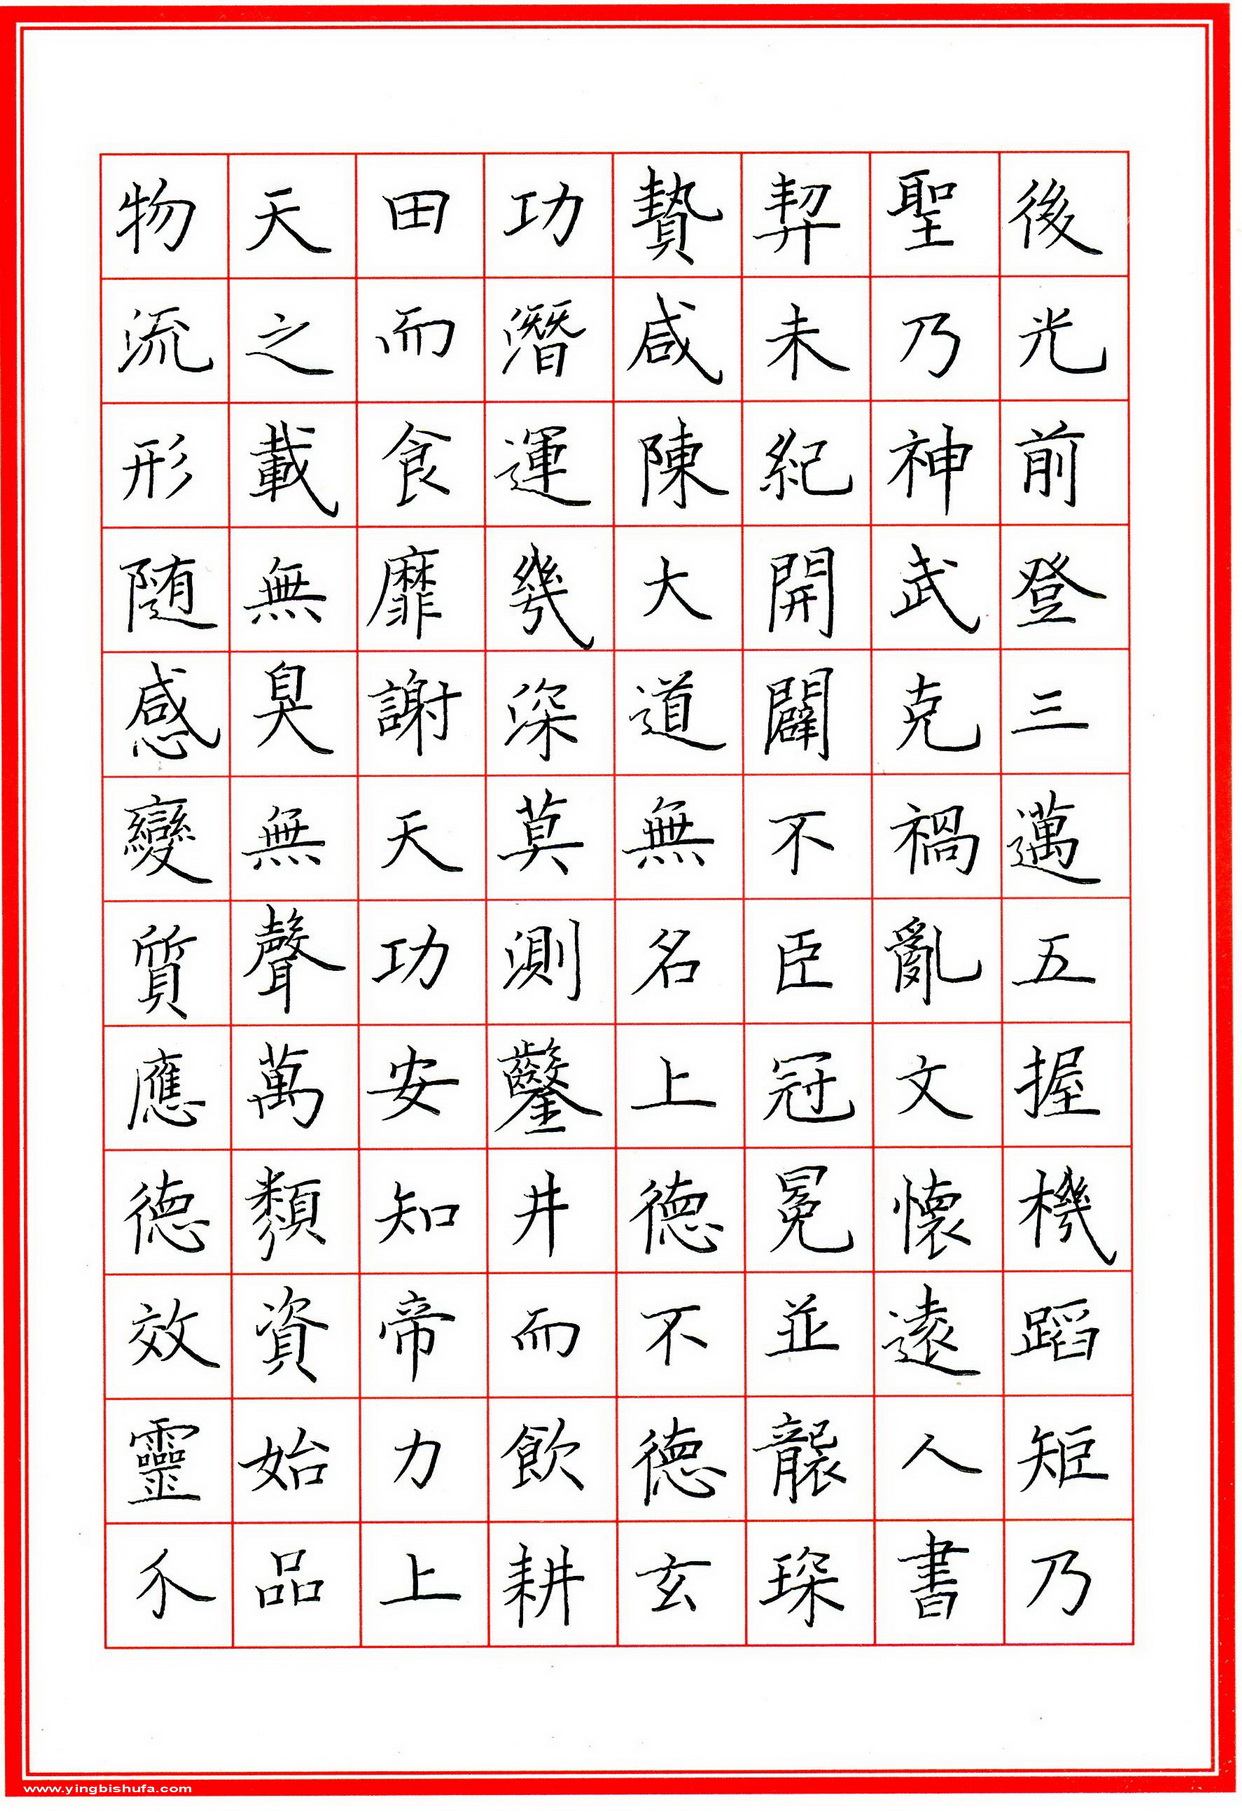 後光前登三邁五握機蹈矩乃
聖乃神武克禍亂文懷遠人書
契未紀開闢不臣冠冕並襲琛
贄咸陳大道無名上德不德玄
功潛運幾深莫測鑿井而飲耕
田而食靡謝天功安知帝力上
天之載無臭無聲萬類資始品
物流形随感變質應德效靈介
www.yingbishufa.com